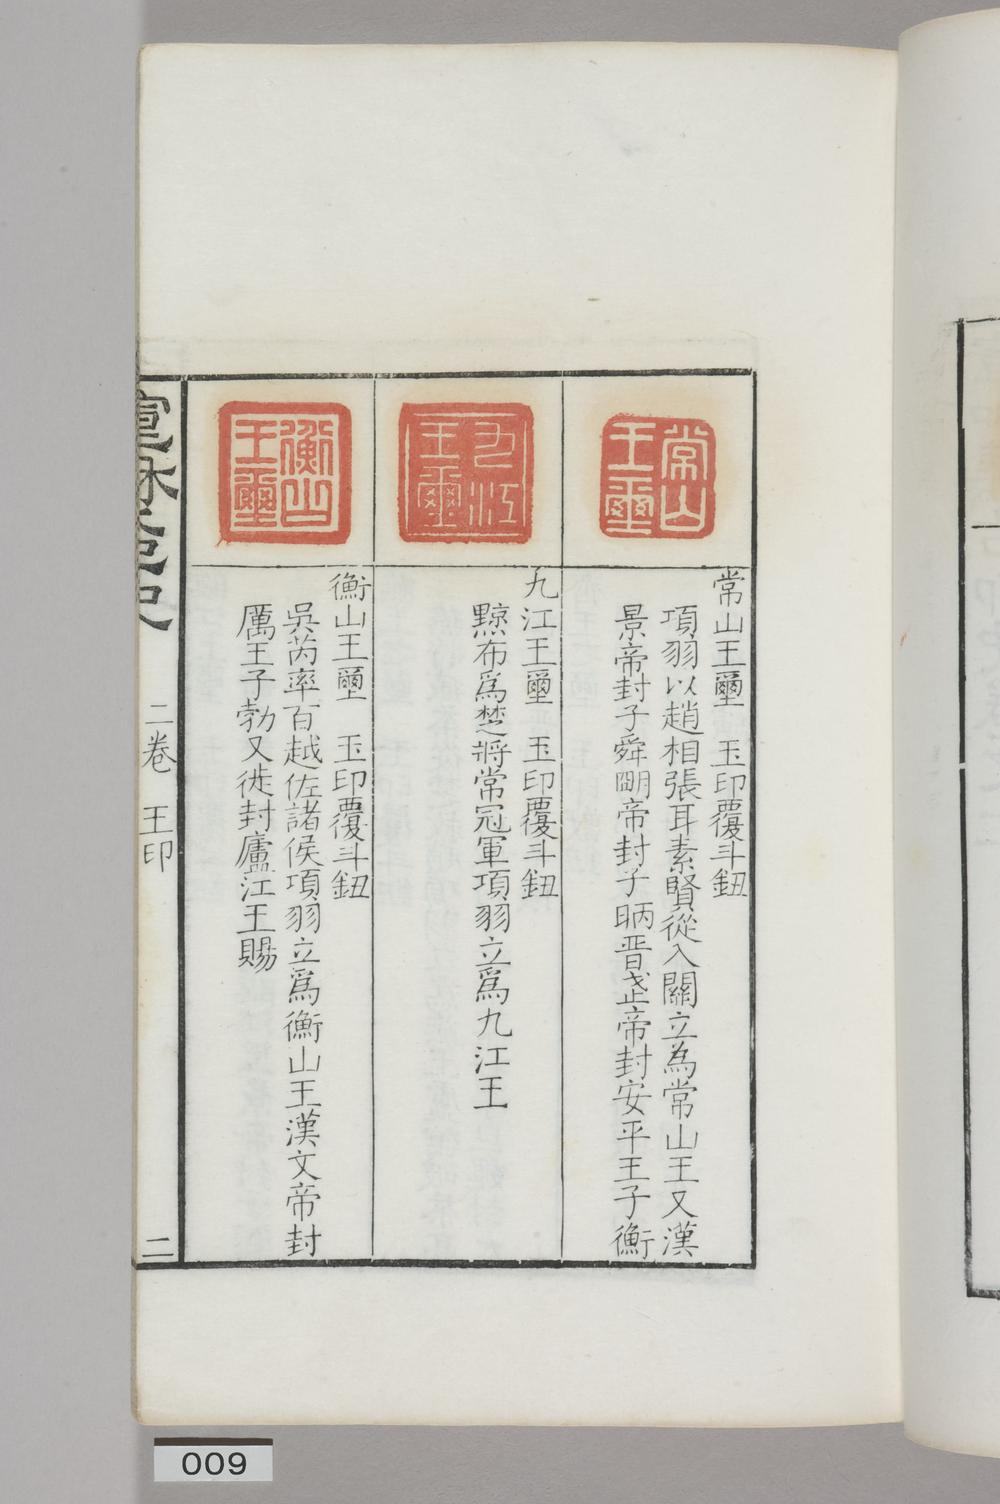 常山王璽
常山王璽　玉印覆斗鈕
項羽以趙相張耳素賢從入關立為常山王又漢
景帝封子舜明帝封子昞晋武帝封安平王子衡
九江王璽
九江王璽　玉印覆斗鈕
黥布爲楚將常冠軍項羽立爲九江王
衡山王璽
衡山王璽　玉印覆斗鈕
吳芮率百越佐諸侯項羽立爲衡山王漢文帝封
厲王子勃又徙封廬江王賜
二卷　王印
二
009